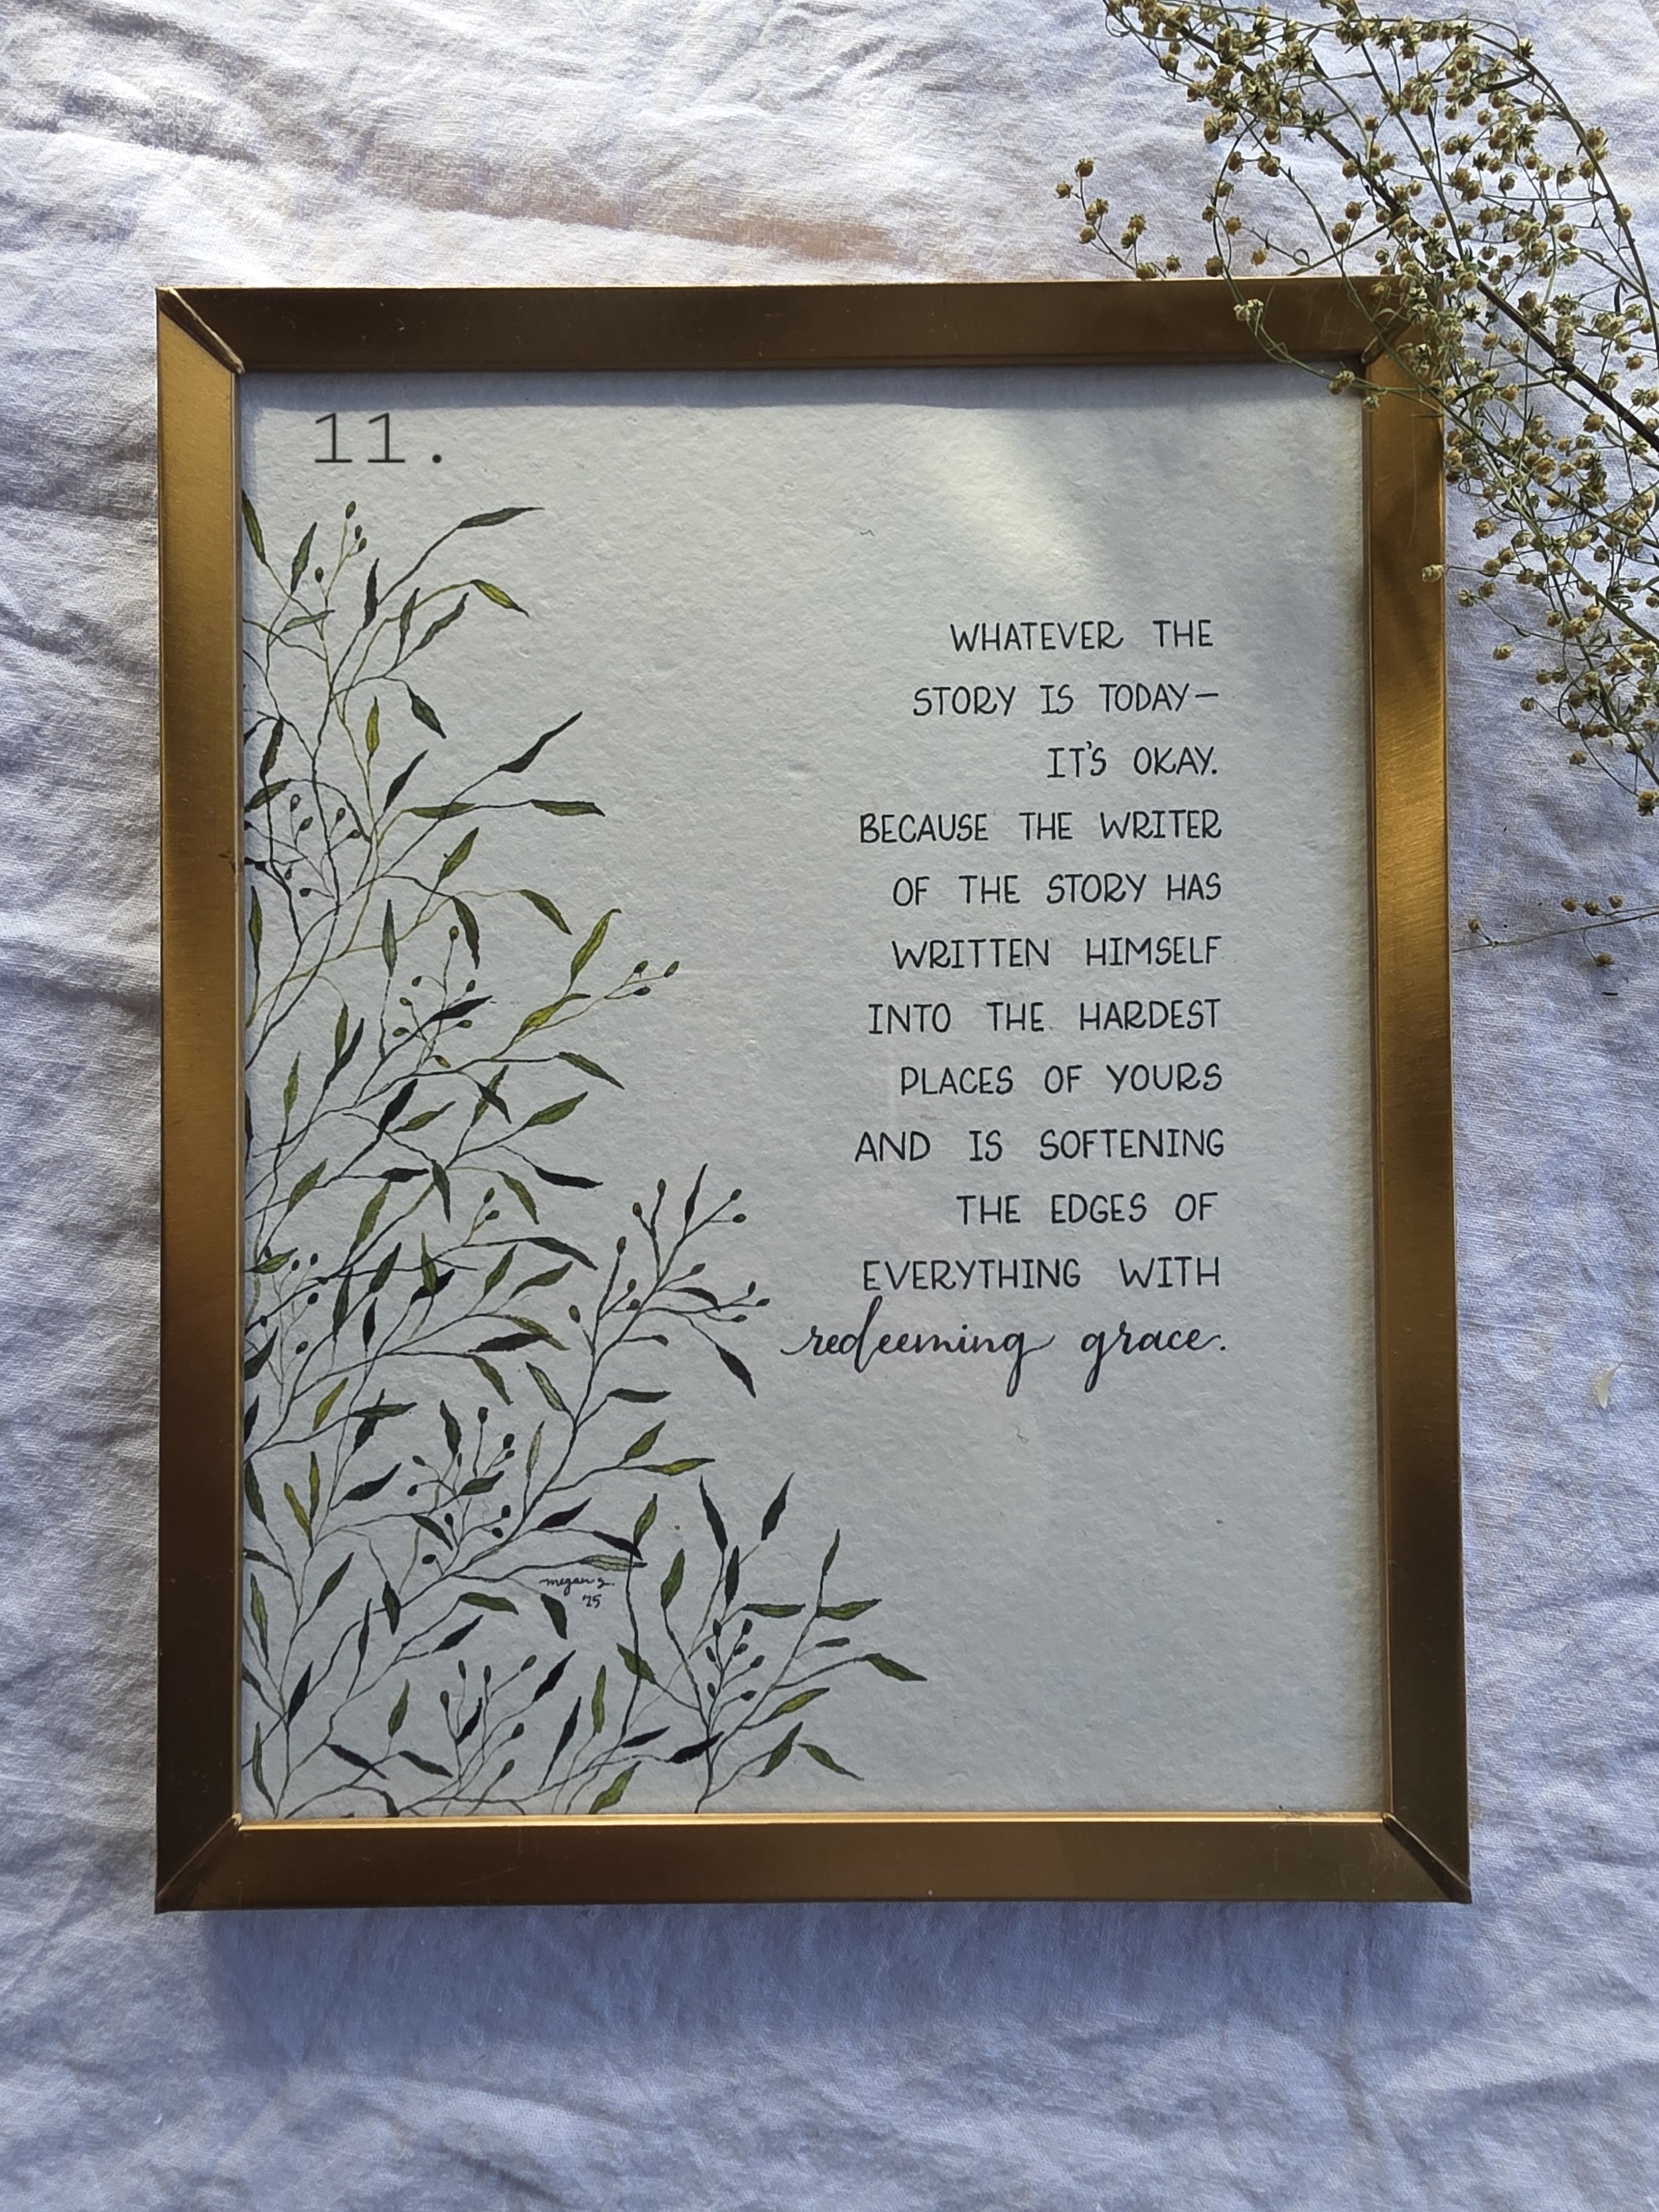 11.
WHATEVER THE
STORY IS TODAY—
IT'S OKAY.
BECAUSE THE WRITER
OF THE STORY HAS
WRITTEN HIMSELF
INTO THE HARDEST
PLACES OF YOURS
AND IS SOFTENING
THE EDGES OF
EVERYTHING WITH
redeeming grace.
megan s.
'25